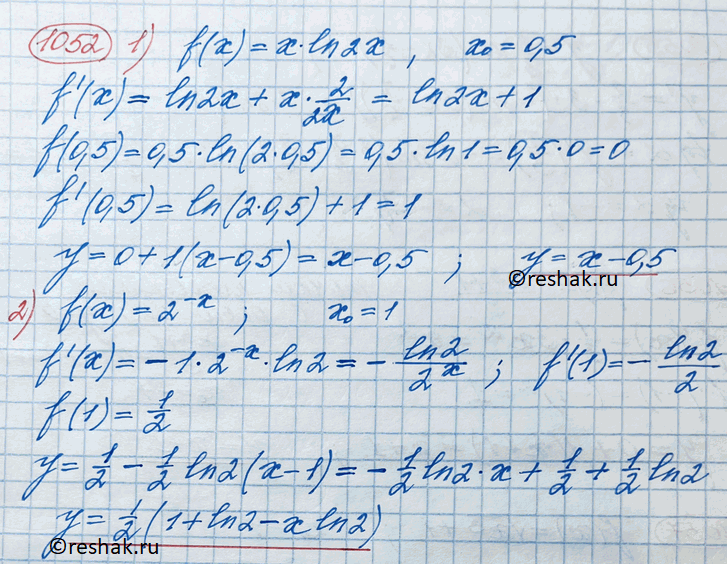 1052 1) f(x) = x·ln2x , x₀ = 0,5
f'(x) = ln2x + x·2/2x = ln2x + 1
f(0,5) = 0,5·ln(2·0,5) = 0,5·ln1 = 0,5·0 = 0
f'(0,5) = ln(2·0,5) + 1 = 1
y = 0 + 1(x - 0,5) = x - 0,5 ; y = x - 0,5
©reshak.ru
2) f(x) = 2⁻ˣ ; x₀ = 1
f'(x) = -1·2⁻ˣ·ln2 = -ln2/2ˣ ; f'(1) = -ln2/2
f(1) = 1/2
y = 1/2 - 1/2 ln2(x - 1) = -1/2 ln2·x + 1/2 + 1/2 ln2
y = 1/2(1 + ln2 - x ln2)
©reshak.ru